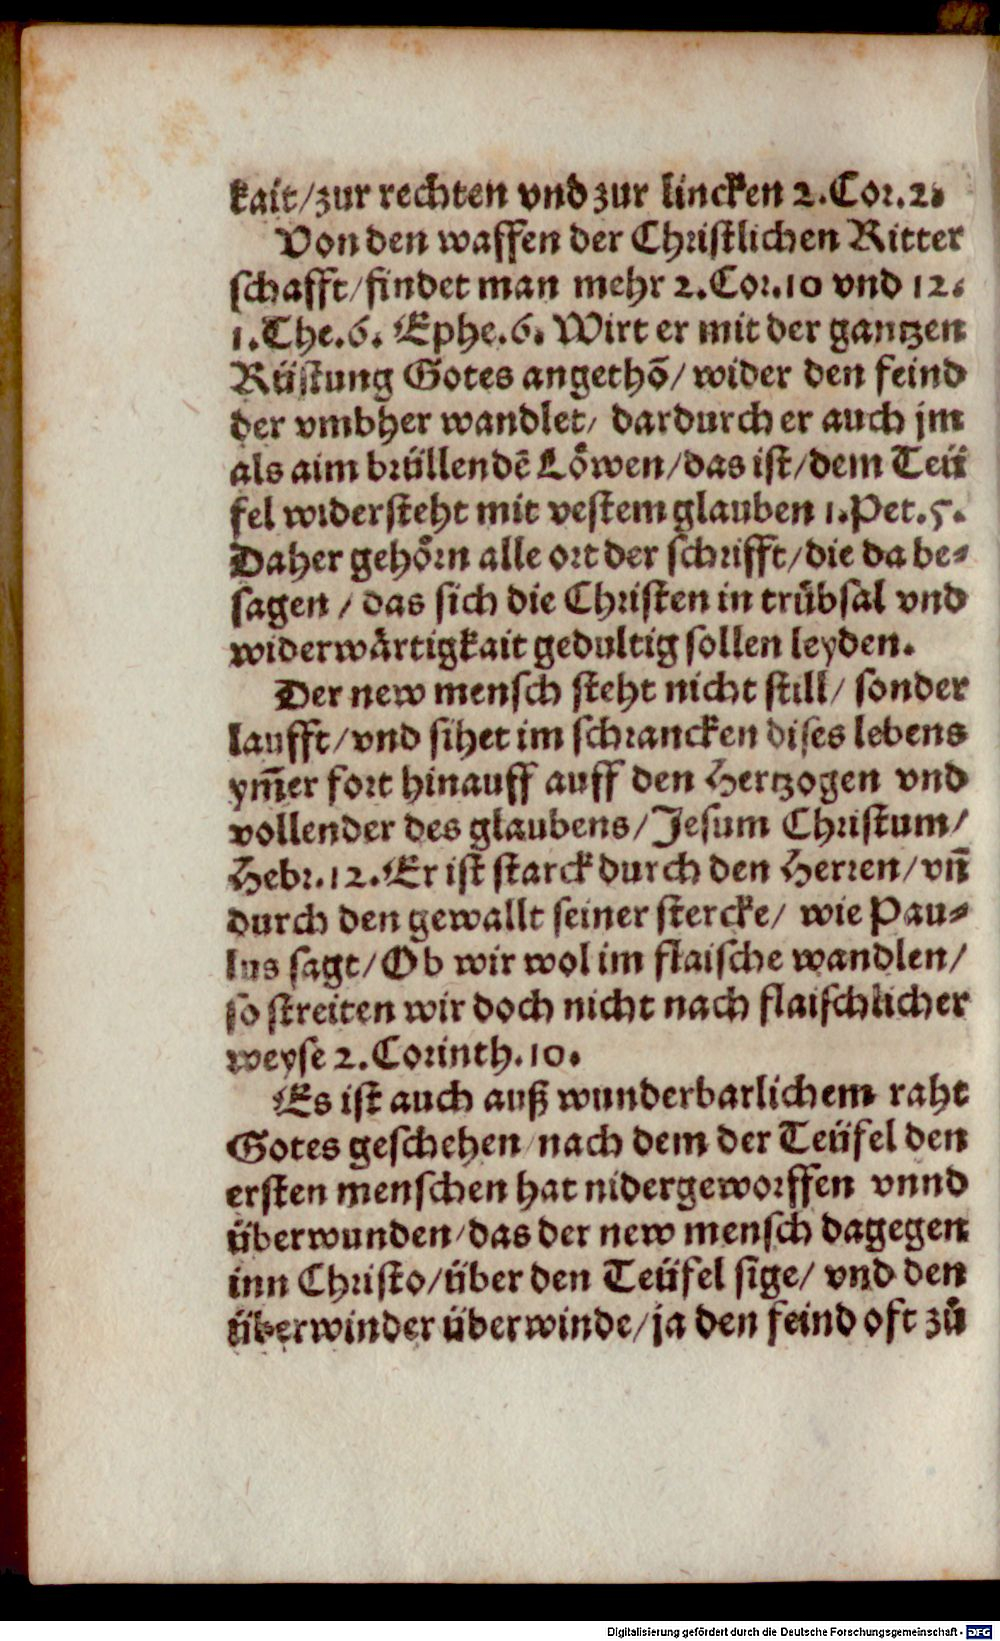 kait/zur rechten vnd zur lincken 2.Cor.2.
Von den waffen der Christlichen Ritter
schafft/findet man mehr 2.Cor.10 vnd 12.
1.The.6. Ephe.6. Wirt er mit der gantzen
Rüstung Gotes angethō/ wider den feind
der vmbher wandlet/ dardurch er auch jm
als aim brüllendē Loͤwen/das ist/dem Teü
fel widersteht mit vestem glauben 1.Pet.5.
Daher gehoͤrn alle ort der schrifft/die da be-
sagen / das sich die Christen in truͤbsal vnd
widerwaͤrtigkait gedultig sollen leyden.
Der new mensch steht nicht still/ sonder
laufft/vnd sihet im schrancken dises lebens
ym̄er fort hinauff auff den Hertzogen vnd
vollender des glaubens/Jesum Christum/
Hebr.12.Er ist starck durch den Herren/vn̄
durch den gewallt seiner stercke/ wie Pau-
lus sagt/Ob wir wol im flaische wandlen/
so streiten wir doch nicht nach flaischlicher
weyse 2.Corinth.10.
Es ist auch auß wunderbarlichem raht
Gotes geschehen/nach dem der Teüfel den
ersten menschen hat nidergeworffen vnnd
überwunden/das der new mensch dagegen
inn Christo/über den Teüfel sige/ vnd den
überwinder überwinde/ja den feind oft zuͦ
Digitalisierung gefördert durch die Deutsche Forschungsgemeinschaft - DFG